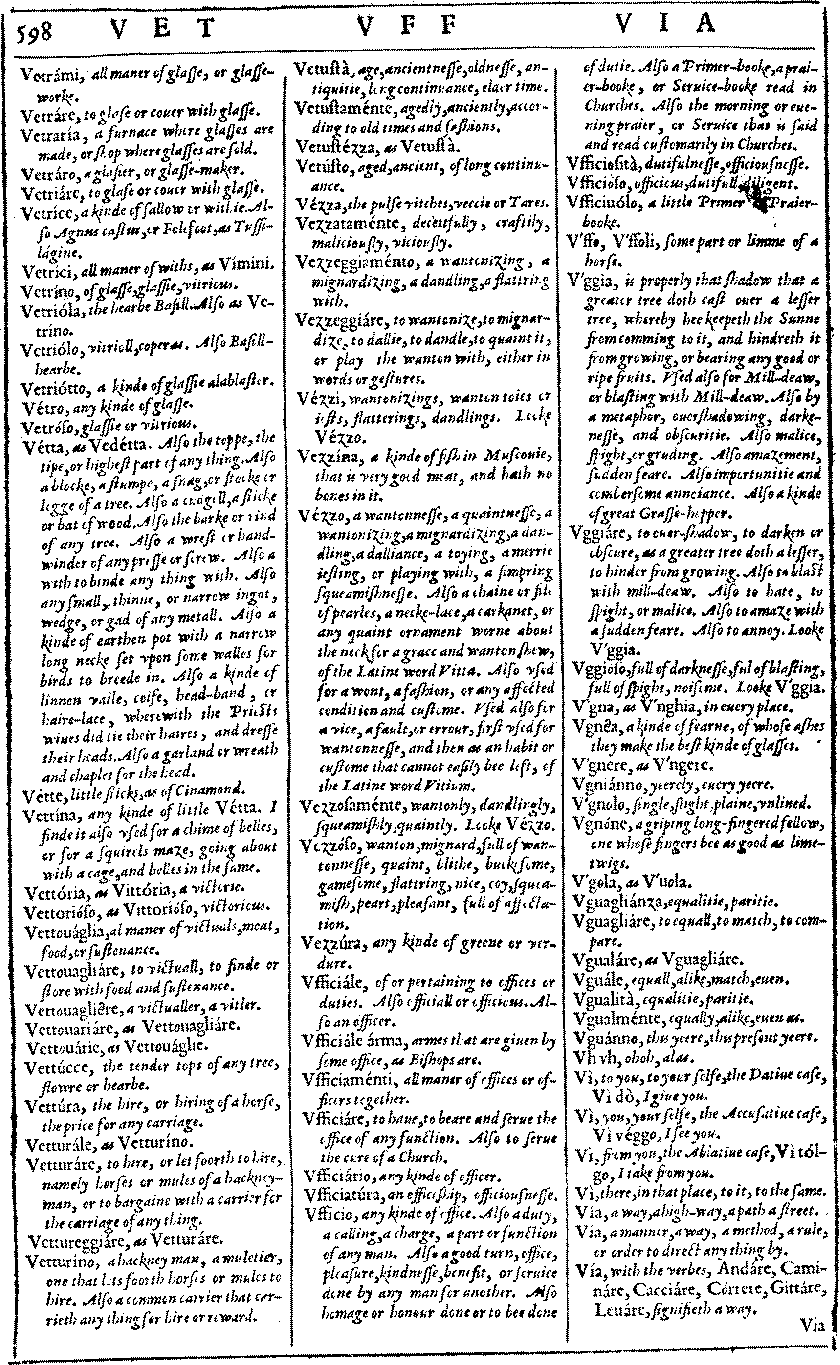 598 VET VFF VIA
Vetrámi, all maner of glasse, or glasse-
worke.
Vetráre, to glase or couer with glasse.
Vetraría, a furnace where glasses are
made, or shop where glasses are sold.
Vetráro, a glasier, or glasse-maker.
Vetriáre, to glase or couer with glasse.
Vetrice, a kinde of sallow or withie. Al-
so Agnus castus, or Folefoot, as Tussi-
lágine.
Vetrici, all maner of withs, as Vímini.
Vetríno, of glasse, glassie, vitrious.
Vetrióla, the hearbe Basill. Also as Ve-
tríno.
Vetriólo, vitrioll, coperas. Also Basill-
hearbe.
Vetriótto, a kinde of glassie alablaster.
Vétro, any kinde of glasse.
Vetróso, glassie or vitrious.
Vétta, as Vedétta. Also the toppe, the
tipe, or highest part of any thing. Also
a blocke, a stumpe, a snag, or stocke or
legge of a tree. Also a cudgell, a sticke
or bat of wood. Also the barke or rind
of any tree. Also a wrest or hand-
winder of any presse or screw. Also a
with to binde any thing with. Also
any small, thinne, or narrow ingot,
wedge, or gad of any metall. Also a
kinde of earthen pot with a narrow
long necke set vpon some walles for
birds to breede in. Also a kinde of
linnen vaile, coife, head-band, or
haire-lace, wherewith the Priests
wiues did tie their haires, and dresse
their heads. Also a garland or wreath
and chaplet for the head.
Vétte, little sticks, as of Cinamond.
Vettína, any kinde of little Vétta. I
finde it also vsed for a chime of belles,
or for a squirels maze, going about
with a cage, and belles in the same.
Vettória, as Vittória, a victorie.
Vettorióso, as Vittorióso, victorious.
Vettouáglia, al maner of victuals, meat,
food, or sustenance.
Vettouagliáre, to victuall, to finde or
store with food and sustenance.
Vettouagliêre, a victualler, a vitler.
Vettouariáre, as Vettouagliáre.
Vettouárie, as Vettouáglie.
Vettúcce, the tender tops of any tree,
flowre or hearbe.
Vettúra, the hire, or hiring of a horse,
the price for any carriage.
Vetturále, as Vetturíno.
Vetturáre, to hire, or let foorth to hire,
namely horses or mules of a hackney-
man, or to bargaine with a carrier for
the carriage of any thing.
Vettureggiáre, as Vetturáre.
Vetturíno, a hackney man, a muletier,
one that lets foorth horses or mules to
hire. Also a common carrier that car-
rieth any thing for hire or reward.
Vetustà, age, ancientnesse, oldnesse, an-
tiquitie, long continuance, elder time.
Vetustaménte, agedly, anciently, accor-
ding to old times and fashions.
Vetustézza, as Vetustà.
Vetústo, aged, ancient, of long continu-
ance.
Vézza, the pulse vitches, veccie or Tares.
Vezzataménte, deceitfully, craftily,
maliciously, viciously.
Vezzeggiaménto, a wantonizing, a
mignardizing, a dandling, a flattring
with.
Vezzeggiáre, to wantonize, to mignar-
dize, to dallie, to dandle, to quaint it,
or play the wanton with, either in
words or gestures.
Vézzi, wantonizings, wanton toies or
iests, flatterings, dandlings. Looke
Vézzo.
Vezzína, a kinde of fish in Muscouie,
that is very good meat, and hath no
bones in it.
Vézzo, a wantonnesse, a quaintnesse, a
wantonizing, a mignardizing, a dan-
dling, a dalliance, a toying, a merrie
iesting, or playing with, a simpring
squeamishnesse. Also a chaine or file
of pearles, a necke-lace, a carkanet, or
any quaint ornament worne about
the neck for a grace and wanton shew,
of the Latine word Vitta. Also vsed
for a wont, a fashion, or any affected
condition and custome. Vsed also for
a vice, a fault, or errour, first vsed for
wantonnesse, and then as an habit or
custome that cannot easily bee left, of
the Latine word Vitium.
Vezzosaménte, wantonly, dandlingly,
squeamishly, quaintly. Looke Vézzo.
Vezzóso, wanton, mignard, full of wan-
tonnesse, quaint, blithe, buckesome,
gamesome, flattring, nice, coy, squea-
mish, peart, pleasant, full of affecta-
tion.
Vezzúra, any kinde of greene or ver-
dure.
Vfficiále, of or pertaining to offices or
duties. Also officiall or officious. Al-
so an officer.
Vfficiále árma, armes that are giuen by
some office, as Bishops are.
Vfficiaménti, all maner of offices or of-
ficers together.
Vfficiáre, to haue, to beare and serue the
office of any function. Also to serue
the cure of a Church.
Vfficiário, any kinde of officer.
Vfficiatúra, an officeship, officiousnesse.
Vfficio, any kinde of office. Also a duty,
a calling, a charge, a part or function
of any man. Also a good turn, office,
pleasure, kindnesse, benefit, or seruice
done by any man for another. Also
homage or honour done or to bee done
of dutie. Also a Primer-booke, a prai-
er-booke, or Seruice-booke read in
Churches. Also the morning or eue-
ning praier, or Seruice that is said
and read customarily in Churches.
Vfficiosità, dutifulnesse, officiousnesse.
Vfficióso, officious, dutifull, diligent.
Vfficiuólo, a little Primer Praier-
booke.
V'ffo, V'ffoli, some part or limme of a
horse.
V'ggia, is properly that shadow that a
greater tree doth cast ouer a lesser
tree, whereby hee keepeth the Sunne
from comming to it, and hindreth it
from growing, or bearing any good or
ripe fruits. Vsed also for Mill-deaw,
or blasting with Mill-deaw. Also by
a metaphor, ouershadowing, darke-
nesse, and obscuritie. Also malice,
spight, or gruding. Also amazement,
sudden feare. Also importunitie and
combersome annoiance. Also a kinde
of great Grasse-hopper.
Vggiáre, to ouer-shadow, to darken or
obscure, as a greater tree doth a lesser,
to hinder from growing. Also to blast
with mill-deaw. Also to hate, to
spight, or malice. Also to amaze with
a sudden feare. Also to annoy. Looke
V'ggia.
Vggióso, full of darknesse, ful of blasting,
full of spight, noisome. Looke V'ggia.
V'gna, as V'nghia, in euery place.
Vgnêa, a kinde of fearne, of whose ashes
they make the best kinde of glasses.
V'gnere, as V'ngere.
Vgniánno, yeerely, euery yeere.
V'gnolo, single, slight, plaine, vnlined.
Vgnóne, a griping long-fingered fellow,
one whose fingers bee as good as lime-
twigs.
V'gola, as V'uola.
Vguagliánza, equalitie, paritie.
Vguagliáre, to equall, to match, to com-
pare.
Vgualáre, as Vguagliáre.
Vguále, equall, alike, match, euen.
Vgualità, equalitie, paritie.
Vgualménte, equally, alike, euen as.
Vguánno, this yeere, this present yeere.
Vh vh, ohoh, alas.
Vi, to you, to your selfe, the Datiue case,
Vi dò, I giue you.
Vi, you, your selfe, the Accusatiue case,
Vi véggo, I see you.
Vi, from you, the Ablatiue case, Vi tól-
go, I take from you.
Vi, there, in that place, to it, to the same.
Via, a way, a high-way, a path a street.
Vía, a manner, a way, a method, a rule,
or order to direct any thing by.
Vía, with the verbes, Andáre, Cami-
náre, Cacciáre, Córrere, Gittáre,
Leuáre, signifieth a way.
Via